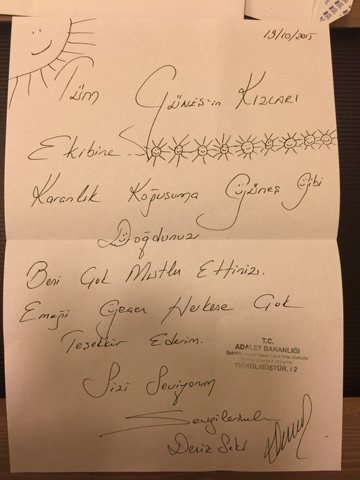 19/10/2015
Tüm Güneş'in Kızları
Ekibine
Karanlık Koğuşuma Güneş Gibi
Doğdunuz
Beni Çok Mutlu Ettiniz.
Emeği Geçen Herkese Çok
Teşekkür Ederim.
T.C.
ADALET BAKANLIĞI
GÖRÜLMÜŞTÜR. / 2
Sizi Seviyorum
Sevgilerimle
Deniz Seki